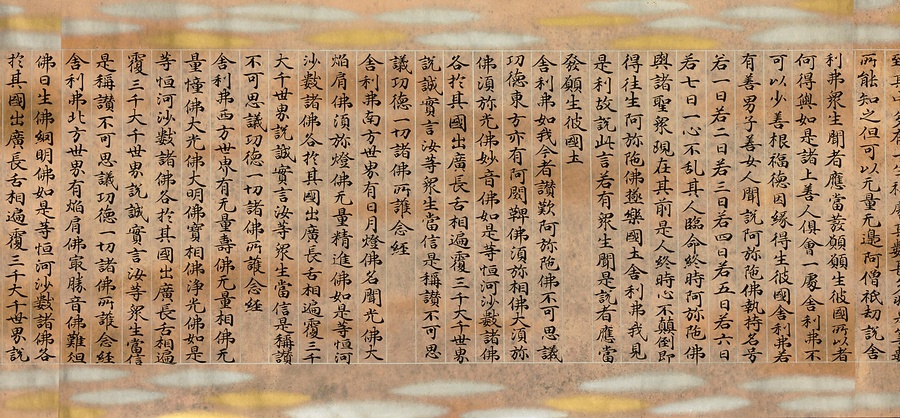 所能知之但可以无量无邊阿僧祇劫說舍
利弗衆生聞者應當發願願生彼國所以者
何得與如是諸上善人俱會一處舍利弗不
可以少善根福德因緣得生彼國舍利弗若
有善男子善女人聞說阿弥陁佛執持名号
若一日若二日若三日若四日若五日若六日
若七日一心不乱其人臨命終時阿弥陁佛
與諸聖衆現在其前是人終時心不顛倒即
得往生阿弥陁佛極樂國土舍利弗我見
是利故說此言若有衆生聞是說者應當
發願生彼國土
舍利弗如我今者讚歎阿弥陁佛不可思議
功德東方亦有阿閦鞞佛須弥相佛大須弥
佛須弥光佛妙音佛如是等恒河沙數諸佛
各於其國出廣長舌相遍覆三千大千世界
說誠實言汝等衆生當信是稱讚不可思
議功德一切諸佛所護念経
舍利弗南方世界有日月燈佛名聞光佛大
焔肩佛須弥燈佛无量精進佛如是等恒河
沙數諸佛各於其國出廣長舌相遍覆三千
大千世界說誠實言汝等衆生當信是稱讚
不可思議功德一切諸佛所護念経
舍利弗西方世界有无量壽佛无量相佛无
量幢佛大光佛大明佛寶相佛淨光佛如是
等恒河沙數諸佛各於其國出廣長舌相遍
覆三千大千世界說誠實言汝等衆生當信
是稱讚不可思議功德一切諸佛所護念経
舍利弗北方世界有焔肩佛最勝音佛難俎
佛日生佛網明佛如是等恒河沙數諸佛各
於其國出廣長舌相遍覆三千大千世界說